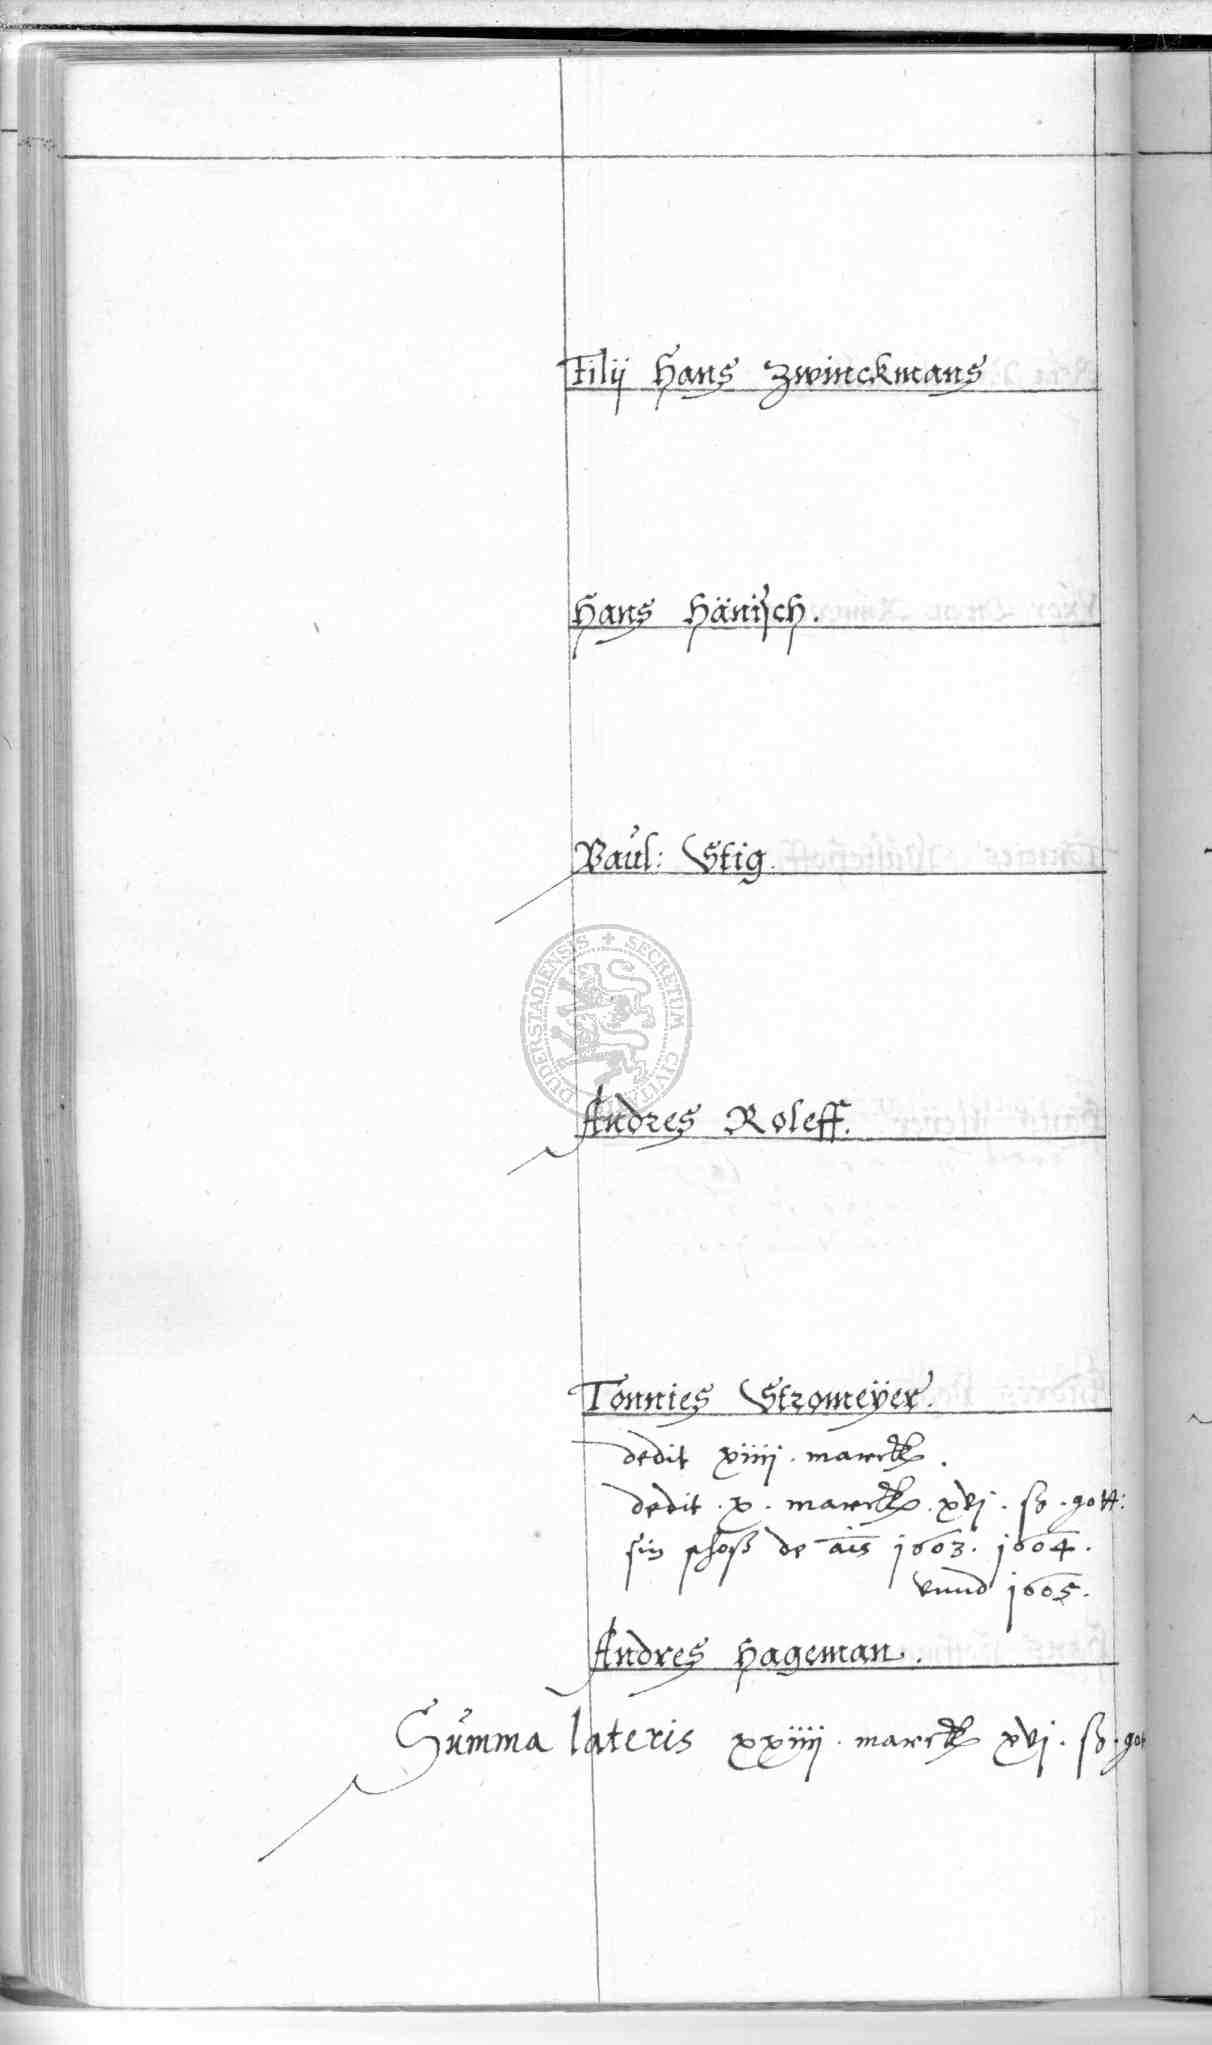 Filij Hans Zwinckmans
Hans Hänisch.
Paul: Stig.
DUDERSTADIENSIS + SECRETUM CIVITA
Andres Roleff.
Tonnies Stromeÿer.
dedit xiiij. marck.
dedit . x . marck . xvj . ß . gott:
sin schoß de ais 1603. 1604.
vnnd 1605.
Andres Hageman.
Summa lateris xxiiij. marck xvj. ß. got